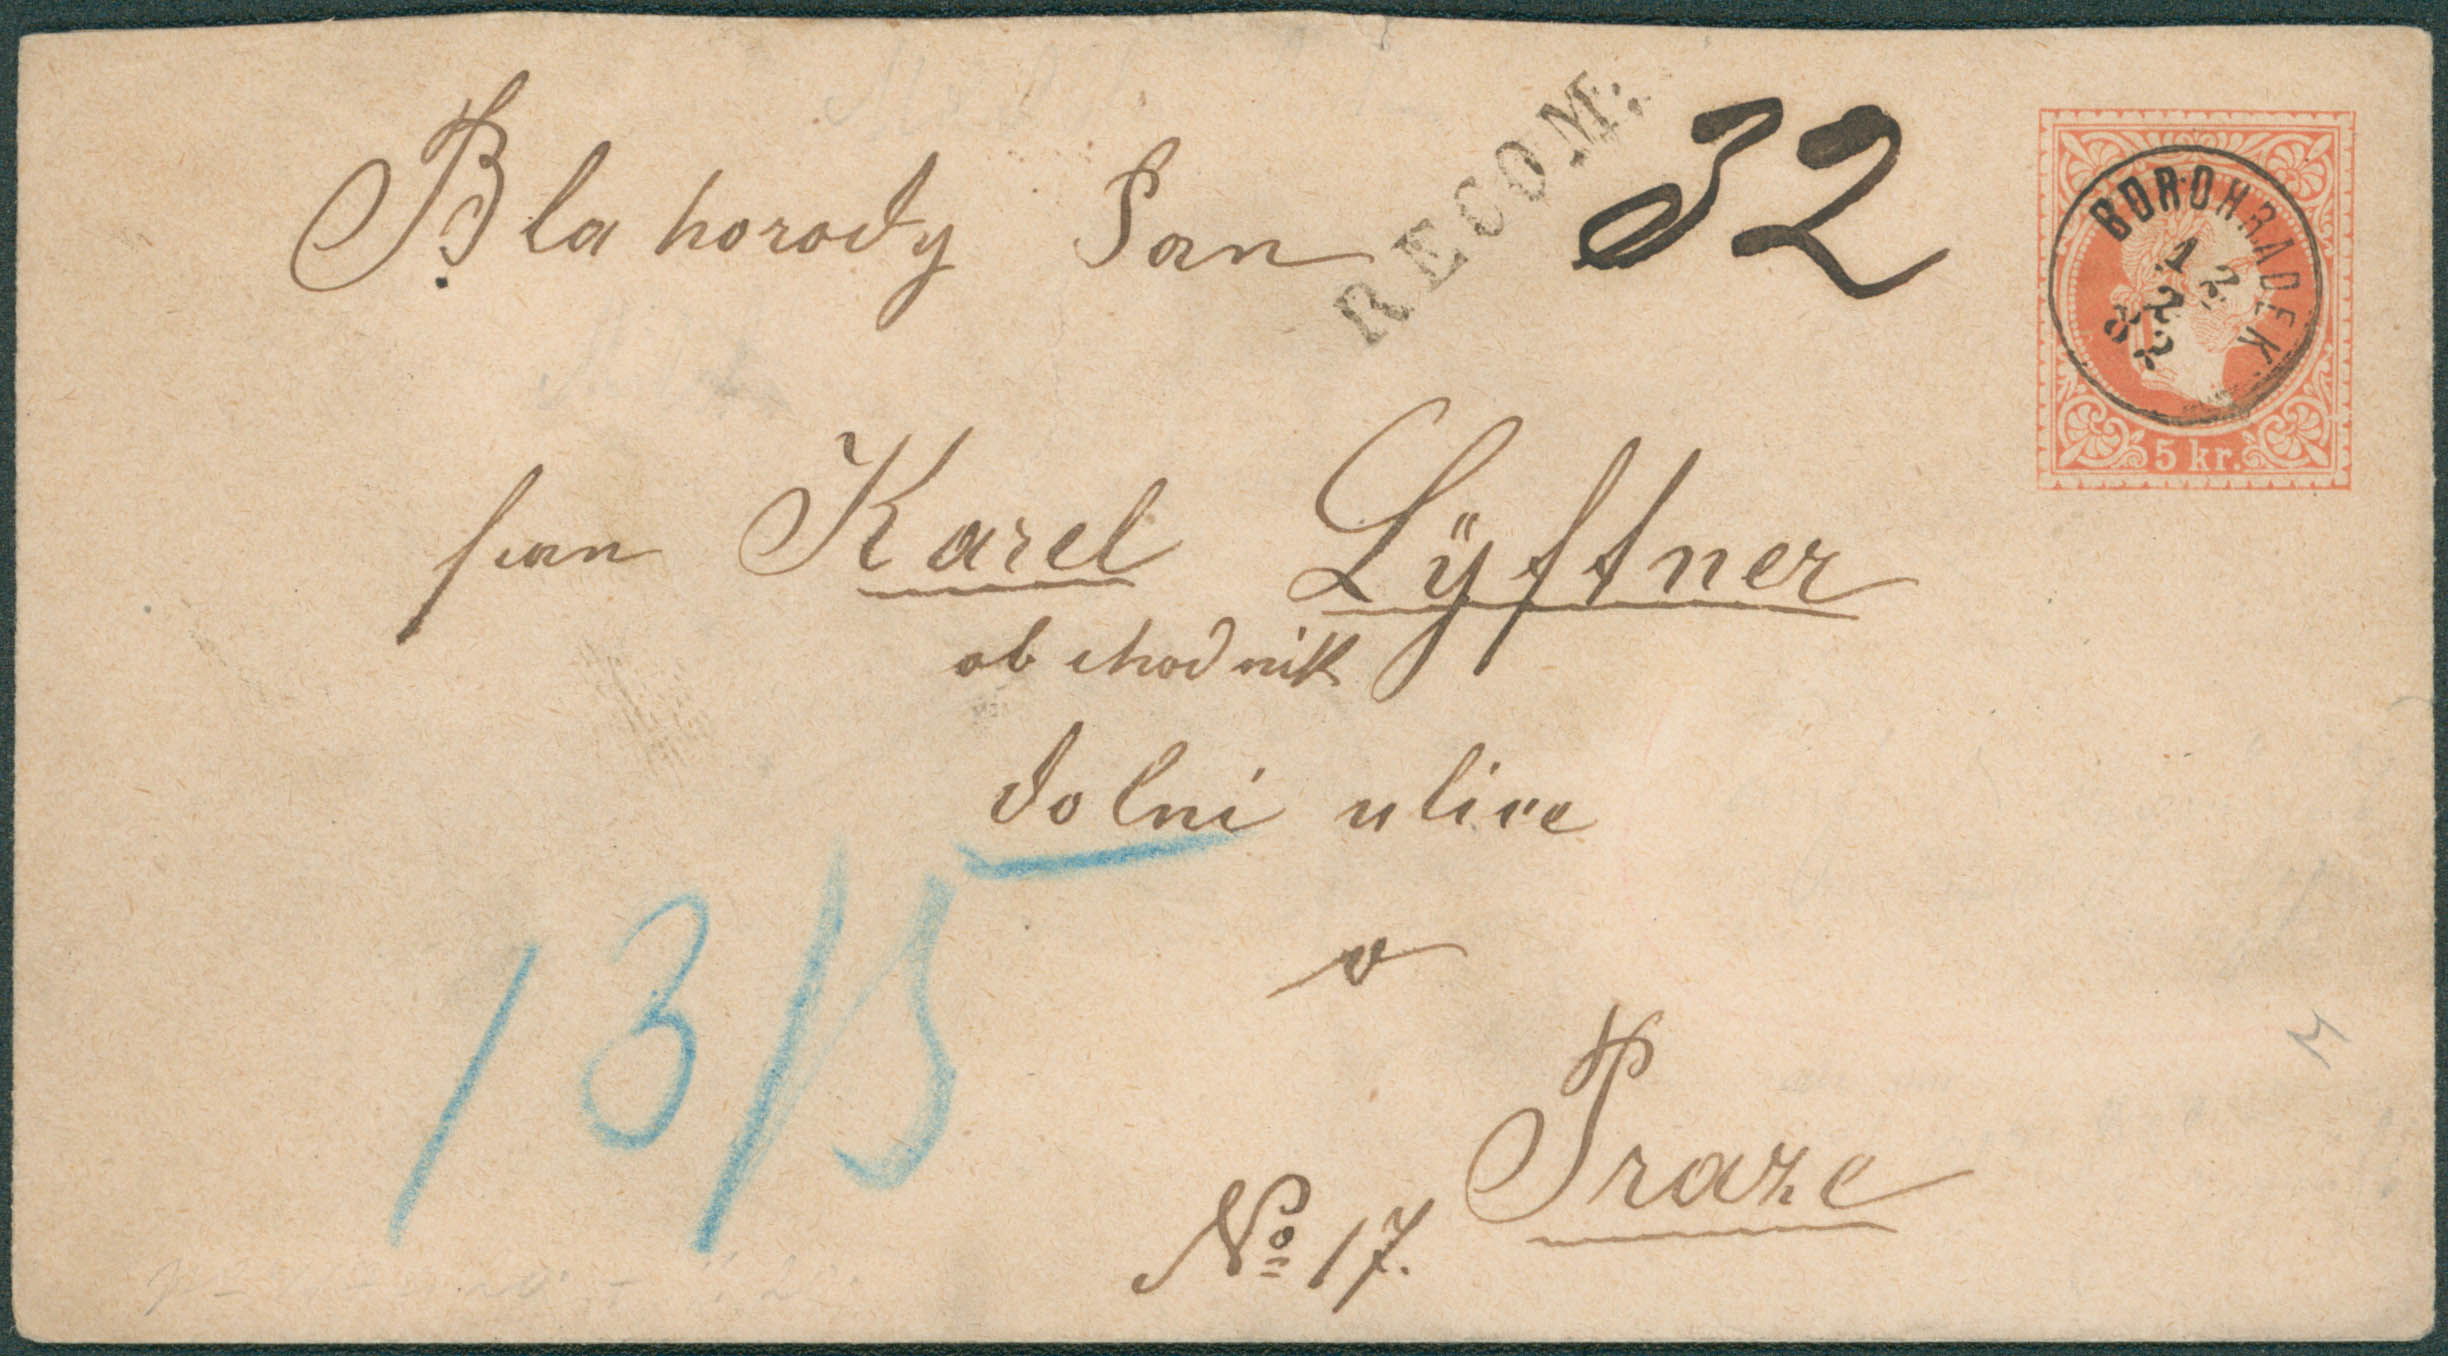 Blahorody Pan
RECOM:
32
BOROHRADEK
12 2
2
82
5 kr.
pan Karel Lÿftner
obchodnik
dolni ulice
v
Praze
No 17.
13/5